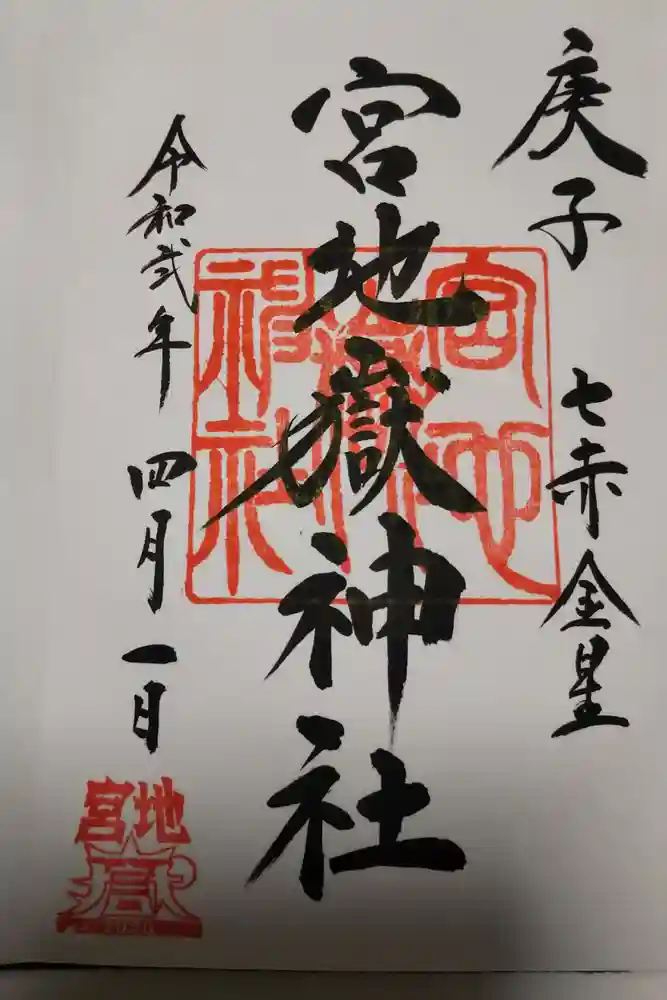 庚子
七赤金星
宮地嶽神社
宮地
嶽神
社
令和弐年
四月一日
宮地
嶽